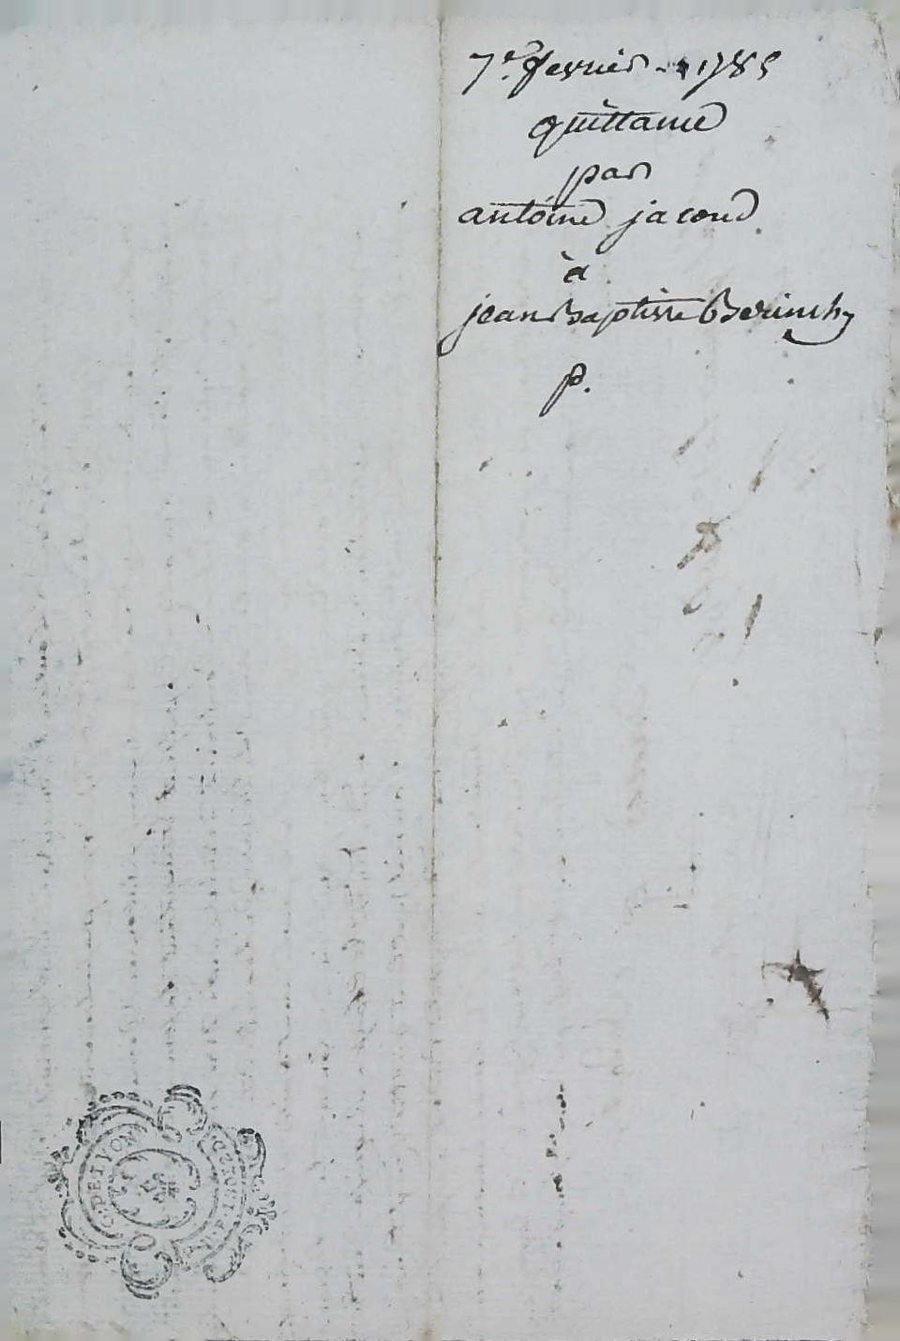 7e. fevrier 1785
quittance
par
antoine jacoud
à
jean Baptiste
p.